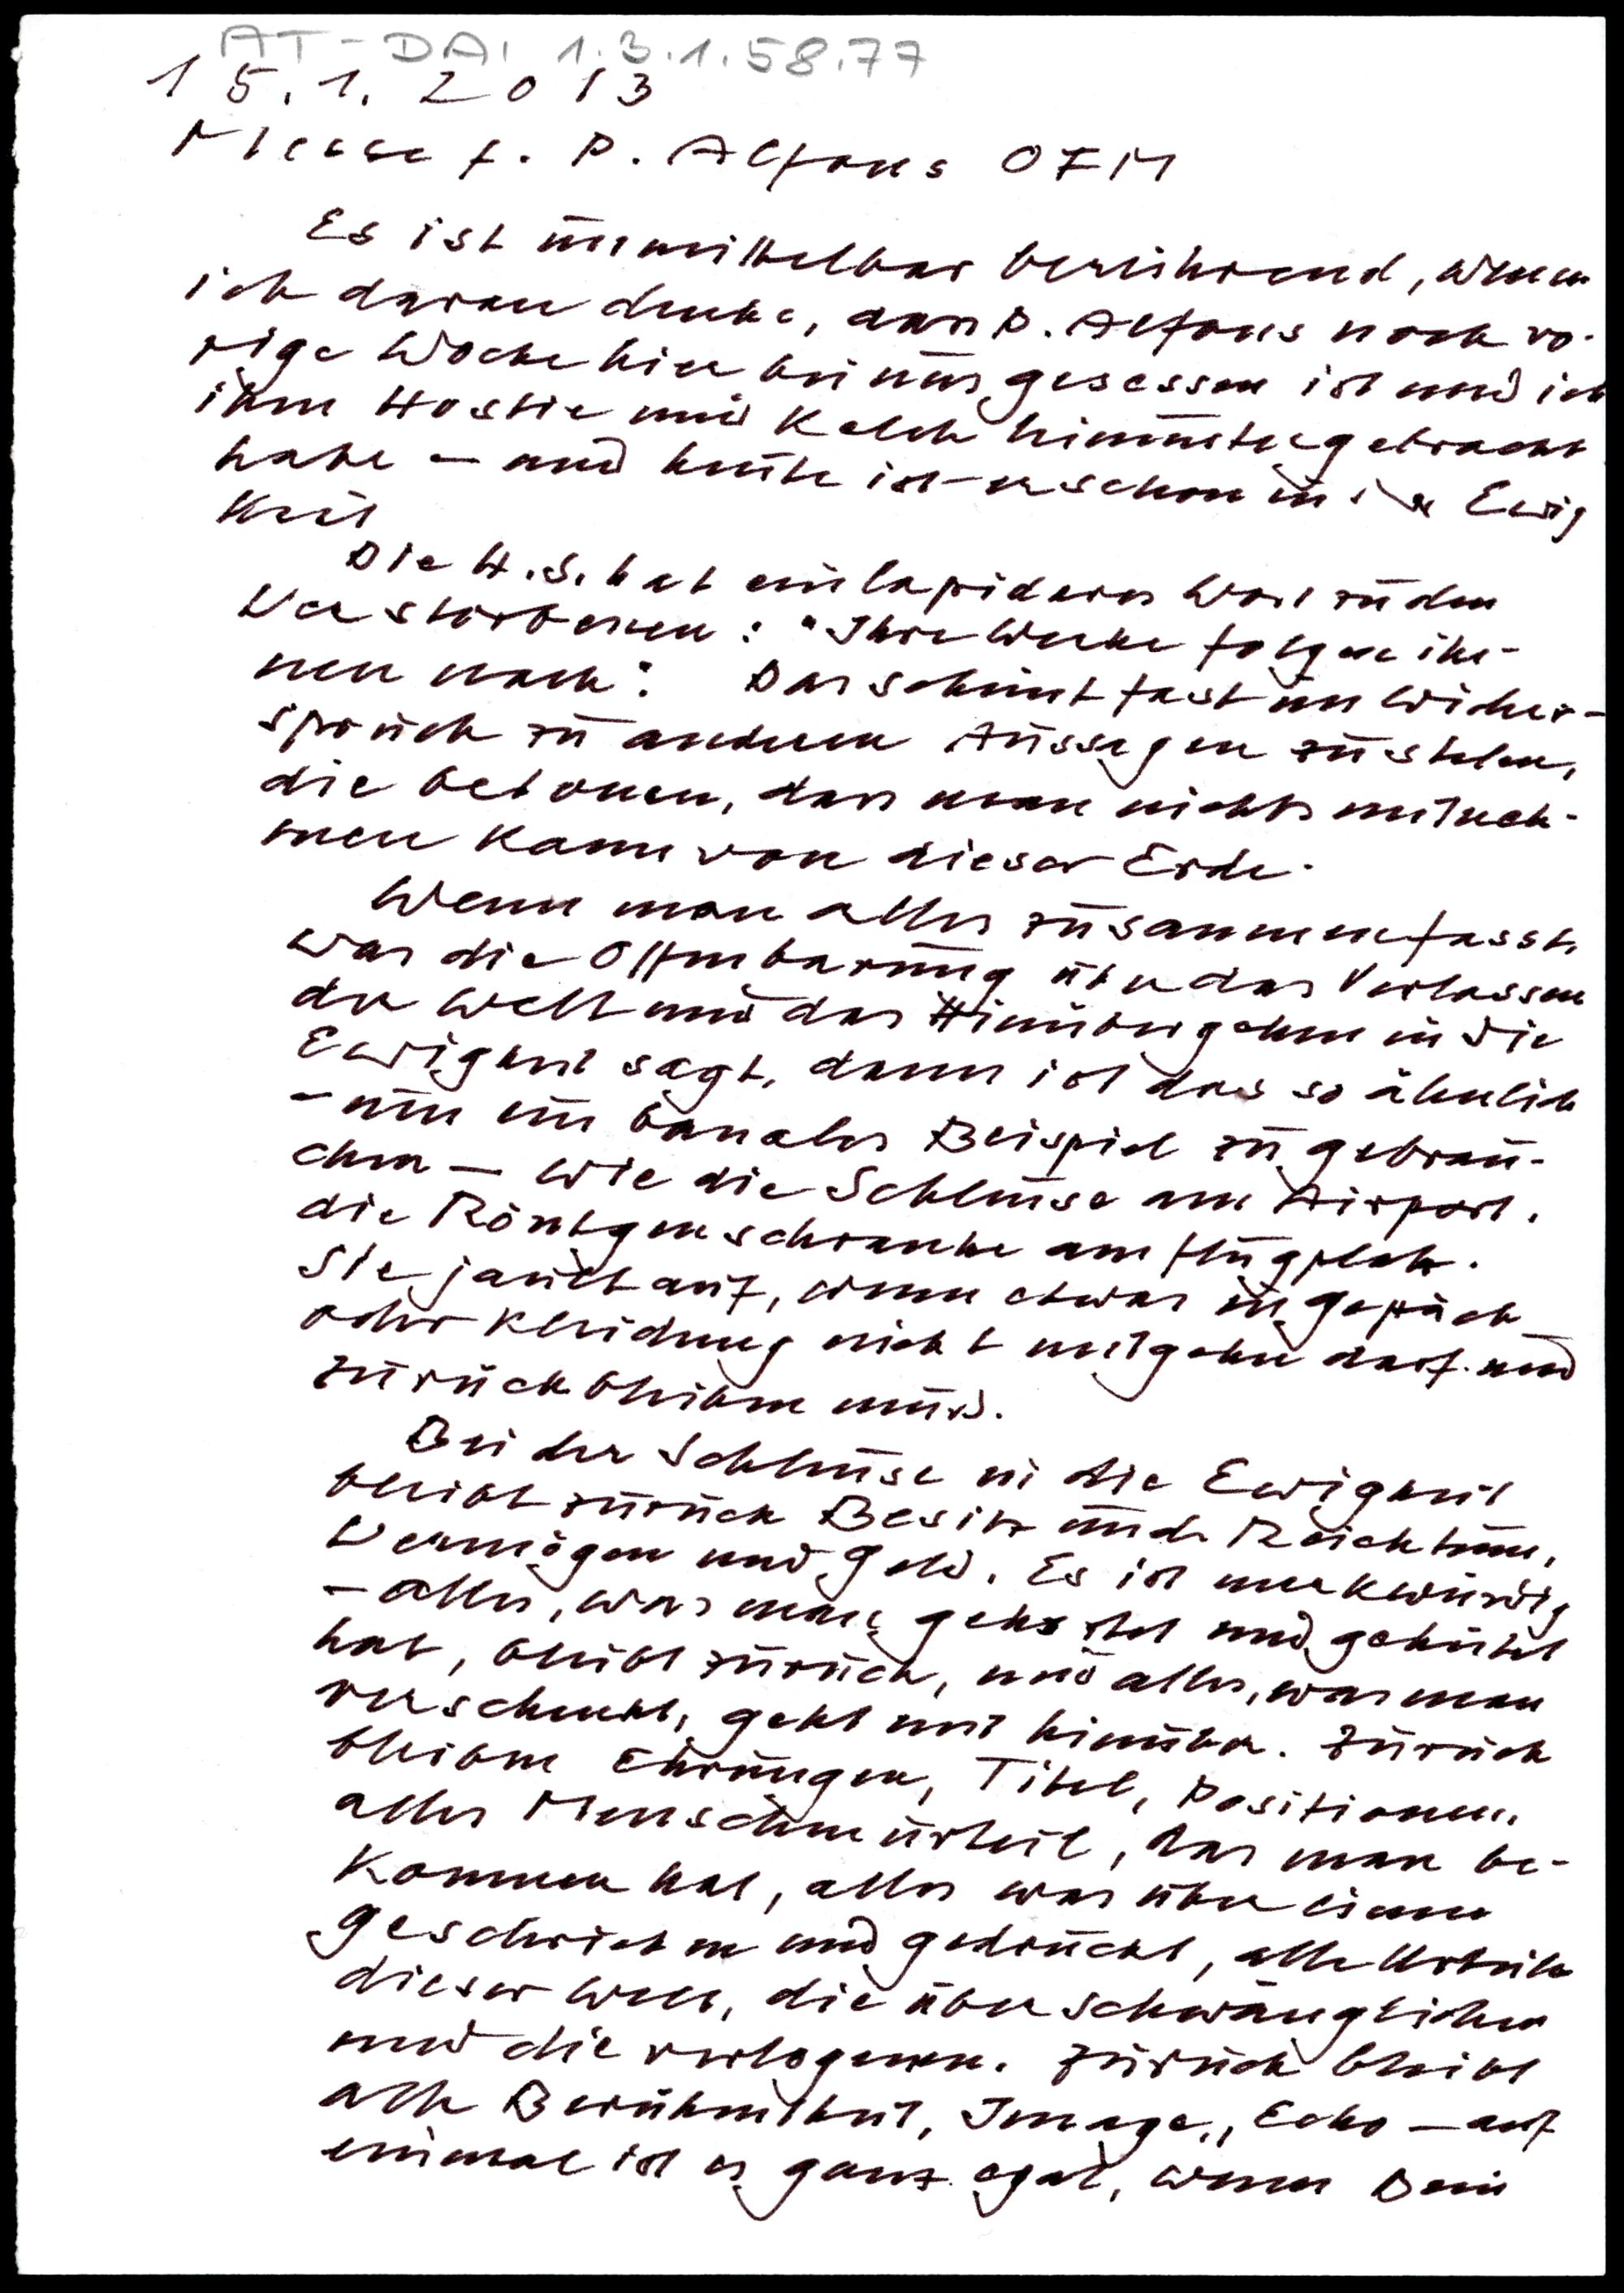 AT-DA, 1.3.1.58.77
15.1.2013
Messe f. P. Alfons OFM
Es ist unmittelbar berührend, wenn
ich daran denke, dass P. Alfons noch vo-
rige Woche hier bei uns gesessen ist und ich
ihm Hostie und Kelch hinunter gebracht
habe – und heute ist er schon in der Ewig
keit
Die H.S. hat ein lapidares Wort zu den
Verstorbenen: "Ihre Werke folgen ih-
nen nach". Das scheint fast im Wider-
spruch zu anderen Aussagen zu stehen,
die betonen, dass man nichts mitneh-
men kann von dieser Erde.
Wenn man alles zusammenfasst,
was die Offenbarung über das Verlassen
der Welt und das Hinübergehen in die
Ewigkeit sagt, dann ist das so ähnlich
– um ein banales Beispiel zu gebrau-
chen – wie die Schleuse am Airport,
die Röntgenschranke am Flugplatz.
Sie jault auf, wenn etwas in Gepäck
oder Kleidung nicht mitgehen darf und
zurückbleiben muss.
Bei der Schleuse in die Ewigkeit
bleibt zurück Besitz und Reichtum,
Vermögen und Geld. Es ist merkwürdig
– alles, was man gehortet und gehütet
hat, bleibt zurück, und alles, was man
verschenkt, geht mit hinüber. Zurück
bleiben Ehrungen, Titel, Positionen,
alles Menschenurteil, das man be-
kommen hat, alles was über einen
geschrieben und gedruckt, alle Urteile
dieser Welt, die überschwänglichen
und die verlogenen. Zurück bleibt
alle Berühmtheit, Image, Echo – auf
einmal ist es ganz egal, wenn Dein